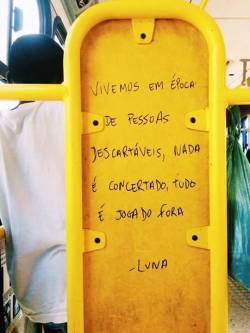 VIVEMOS EM ÉPOCA
DE PESSOAS
DESCARTÁVEIS, NADA
É CONCERTADO, TUDO
É JOGADO FORA
-LUNA